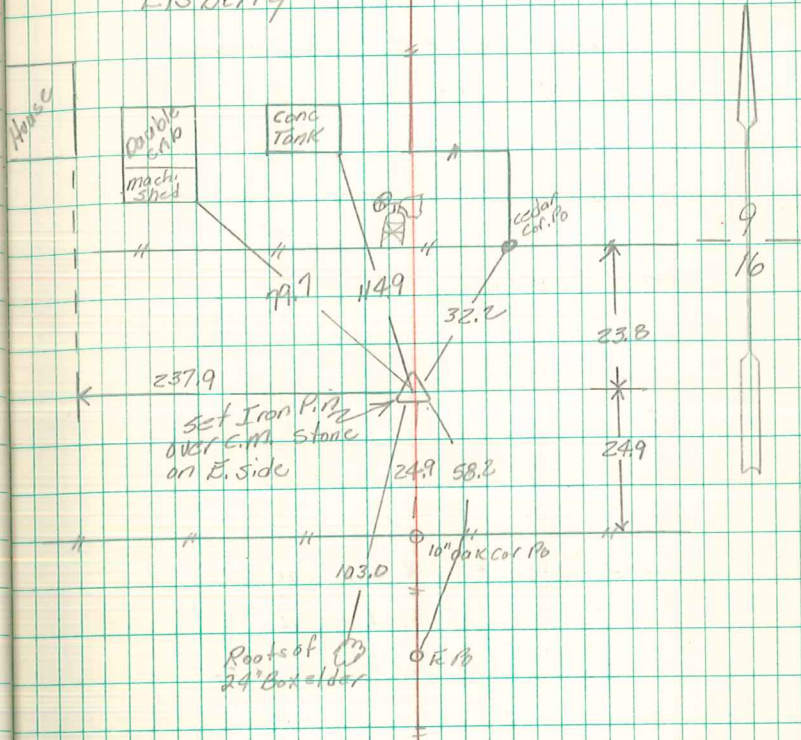 House
Double
Crib
mach.
shed
Conc
Tank
cedar
Cor. Po
9
16
79.7
114.9
32.2
23.8
237.9
Set Iron Pin
over C.M. Stone
on E. side
24.9
58.2
24.9
10" oak cor Po
103.0
Roots of
24" Box elder
E Po